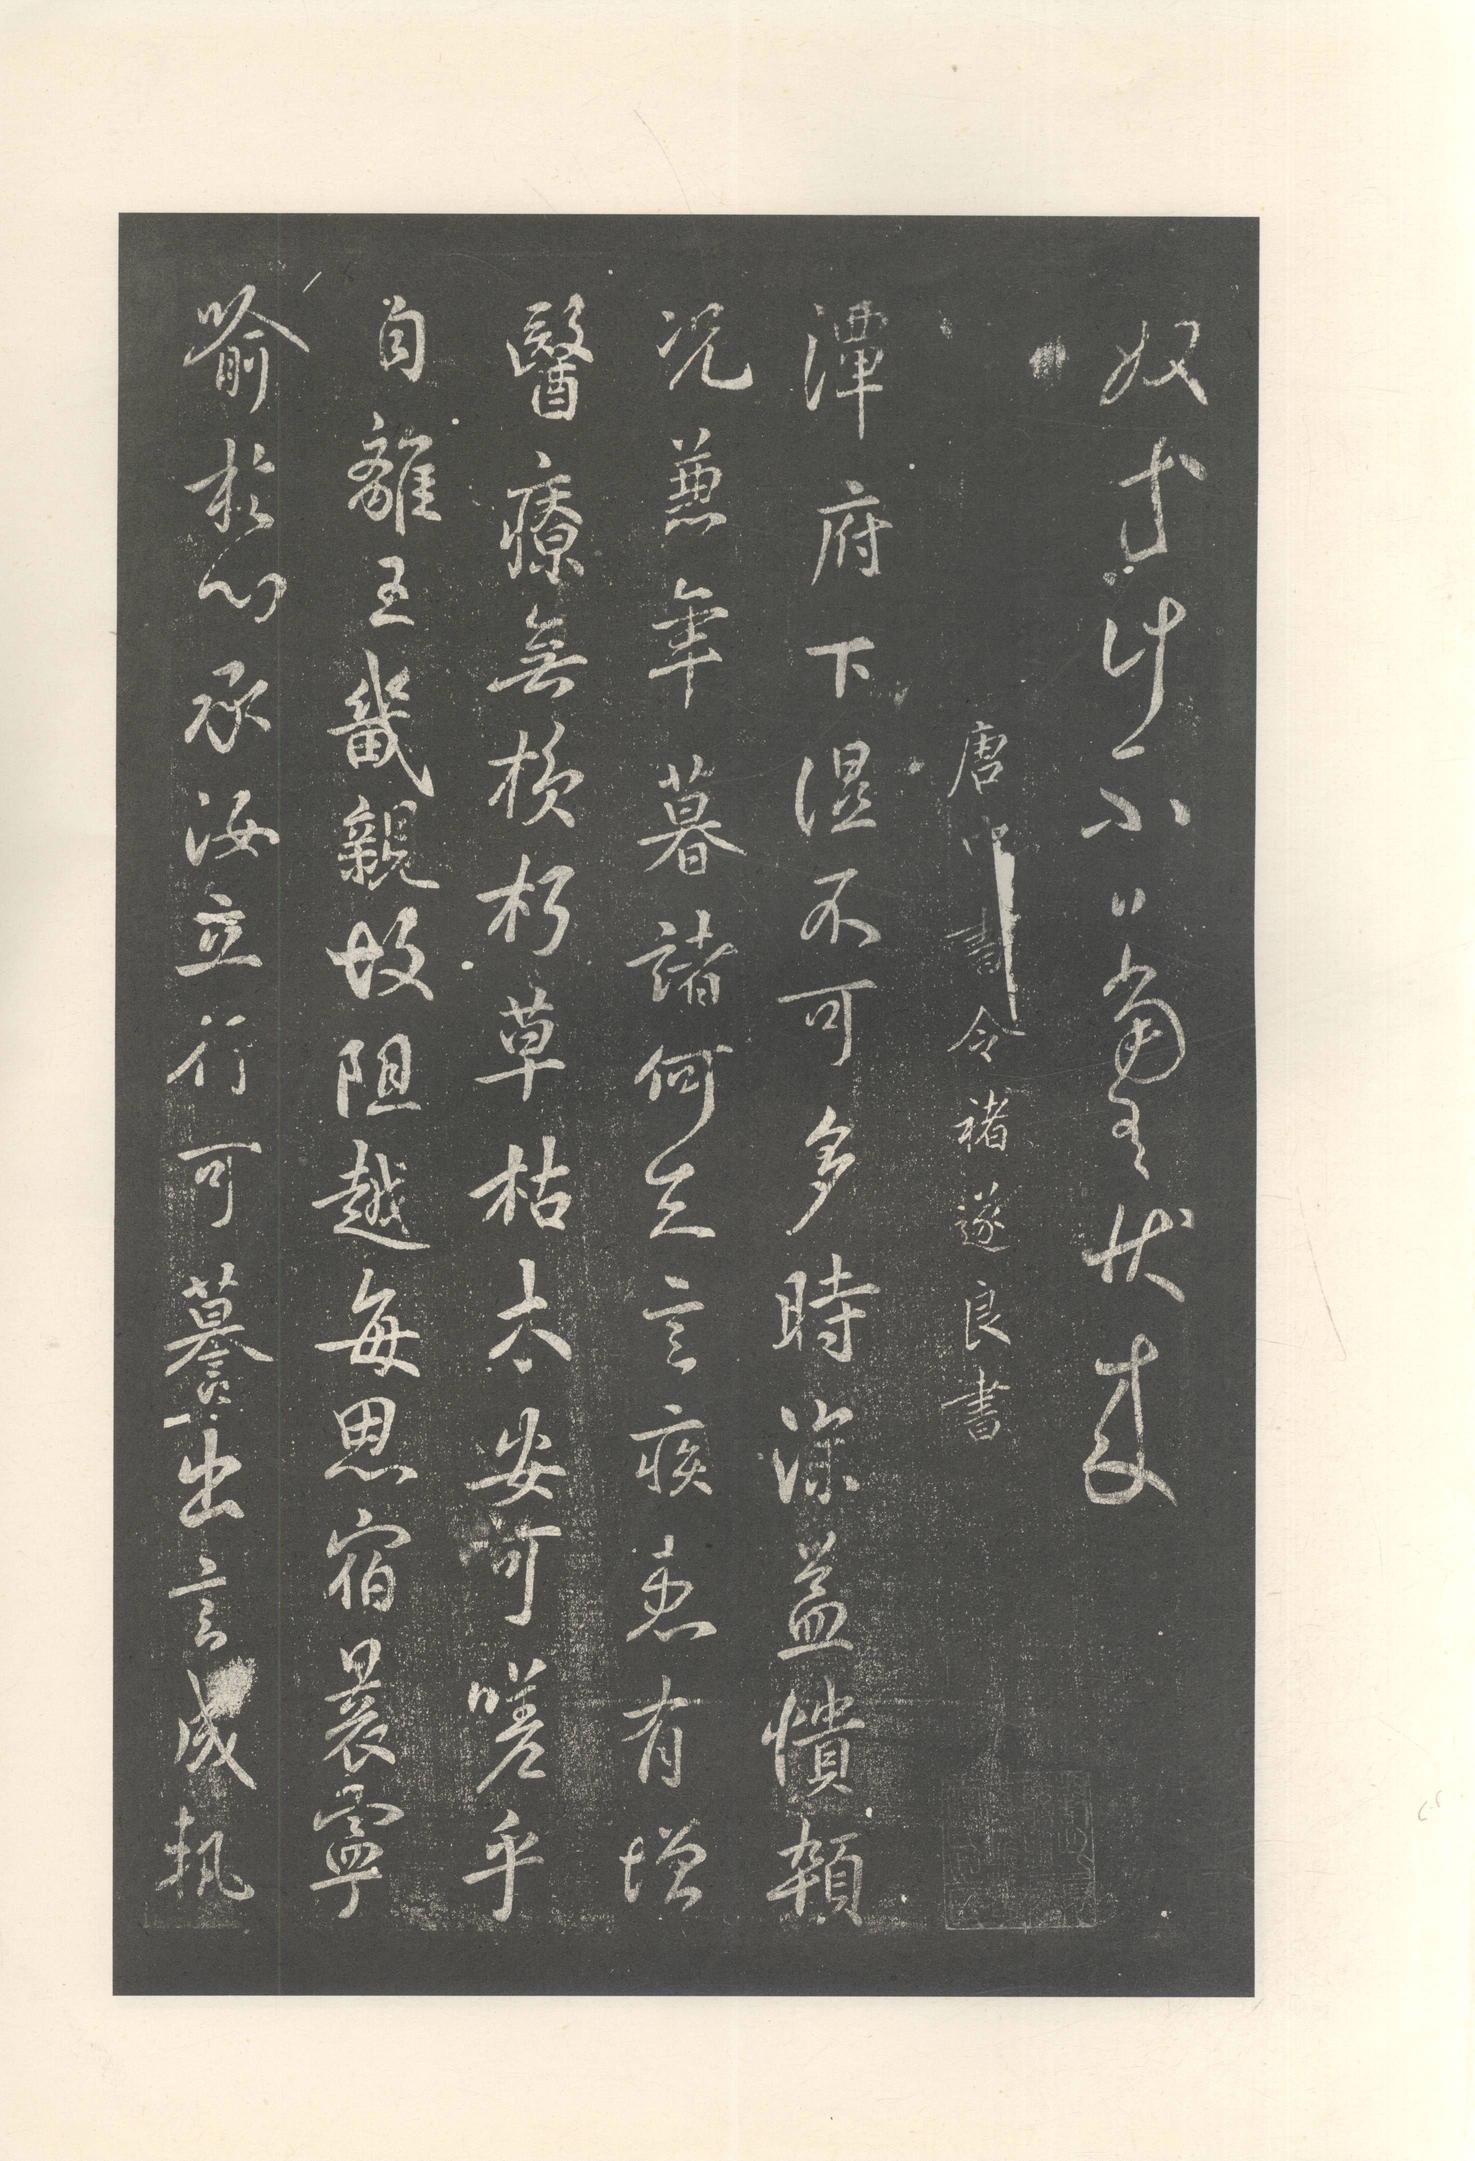 奴計不久當至伏
唐中書令褚遂良書
潭府下濕不可多時深益憒頓
況兼年暮諸何足言疾恙有增
醫療無損朽草枯木安可嗟乎
自離王畿親故阻越每思宿晨寧
喻於心承汝立行可謩出言成軌